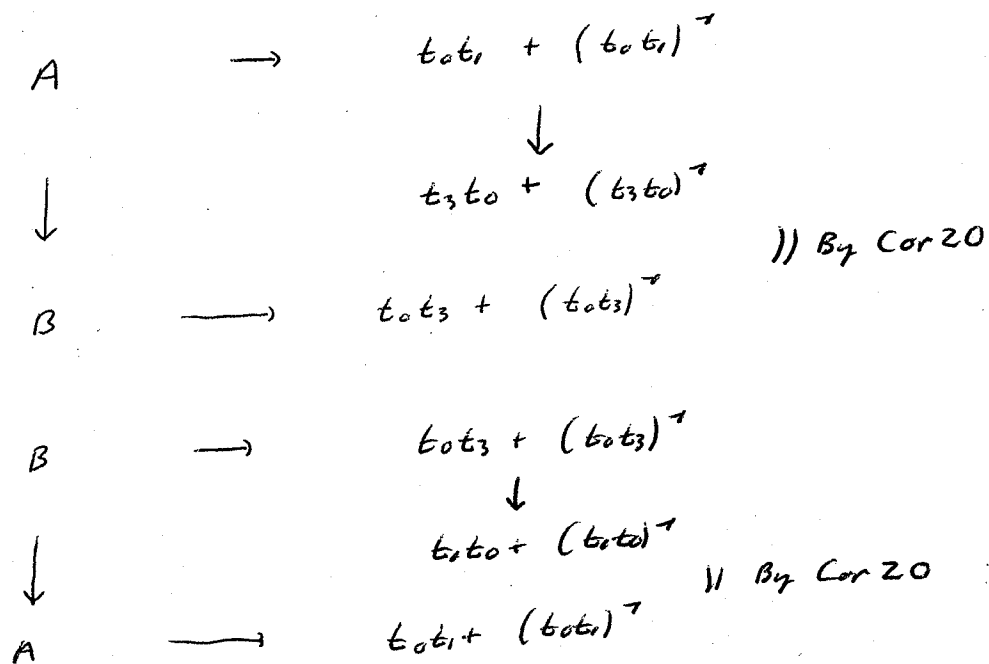 A → t₀t₁ + (t₀t₁)⁻¹
↓ ↓
t₃t₀ + (t₃t₀)⁻¹
)) By Cor 20
B → t₀t₃ + (t₀t₃)⁻¹
B → t₀t₃ + (t₀t₃)⁻¹
↓ ↓
t₁t₀ + (t₁t₀)⁻¹
)) By Cor 20
A → t₀t₁ + (t₀t₁)⁻¹